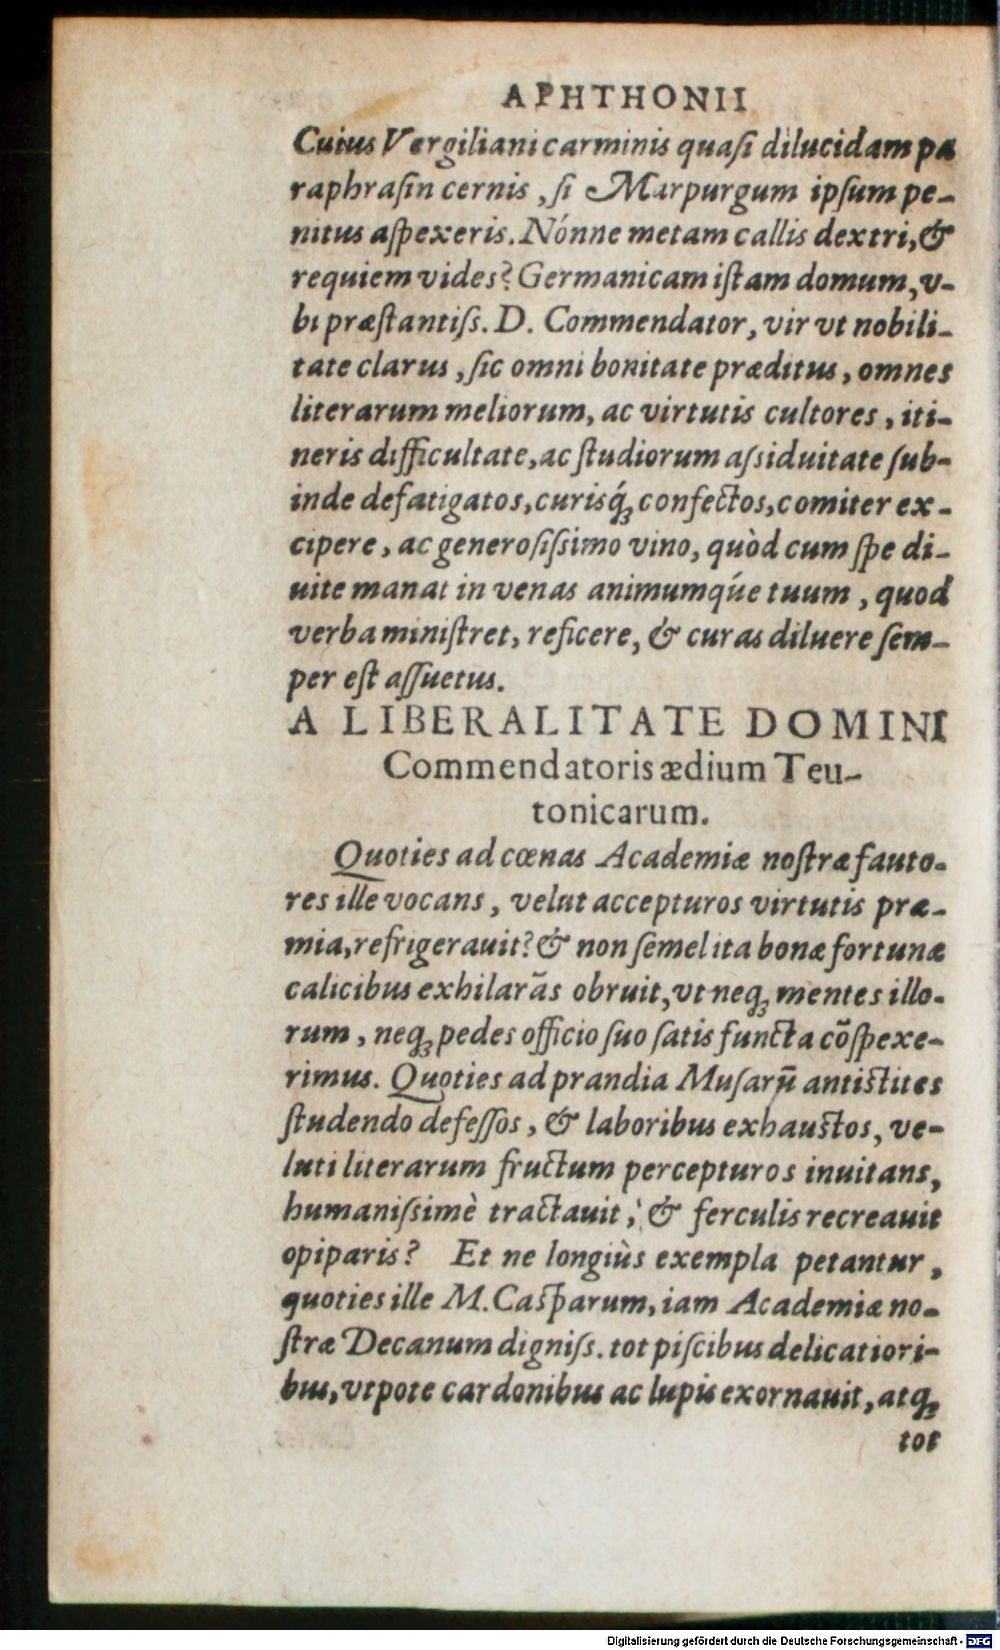 APHTHONII
Cuius Vergiliani carminis quaſi dilucidam pa
raphraſin cernis, ſi Marpurgum ipſum pe-
nitus aſpexeris. Nónne metam callis dextri, &
requiem vides? Germanicam iſtam domum, v-
bi præſtantiſſ. D. Commendator, vir vt nobili-
tate clarus, ſic omni bonitate præditus, omnes
literarum meliorum, ac virtutis cultores, iti-
neris difficultate, ac ſtudiorum aſsiduitate ſub-
inde defatigatos, curisq́ꝫ confectos, comiter ex-
cipere, ac generoſiſsimo vino, quòd cum ſpe di-
uite manat in venas animumqúe tuum, quod
verba miniſtret, reficere, & curas diluere ſem-
per eſt aſſuetus.
A LIBERALITATE DOMINI
Commendatoris ædium Teu-
tonicarum.
Quoties ad cœnas Academiæ noſtræ fauto-
res ille vocans, velut accepturos virtutis præ-
mia, refrigerauit? & non ſemel ita bonæ fortunæ
calicibus exhilarãs obruit, vt neqꝫ mentes illo-
rum, neqꝫ pedes officio ſuo ſatis functa cõſpexe-
rimus. Quoties ad prandia Muſarũ antistites
ſtudendo defeſſos, & laboribus exhaustos, ve-
luti literarum fructum percepturos inuitans,
humaniſsimè tractauit, & ferculis recreauit
opiparis? Et ne longiùs exempla petantur,
quoties ille M. Casparum, iam Academiæ no-
ſtræ Decanum digniſs. tot piſcibus delicatiori-
bus, vtpote cardonibus ac lupis exornauit, atqꝫ
tot
Digitalisierung gefördert durch die Deutsche Forschungsgemeinschaft - DFG